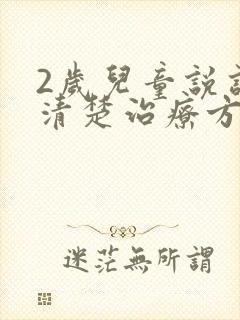 2歲兒童説
清楚治療方
迷茫無所謂